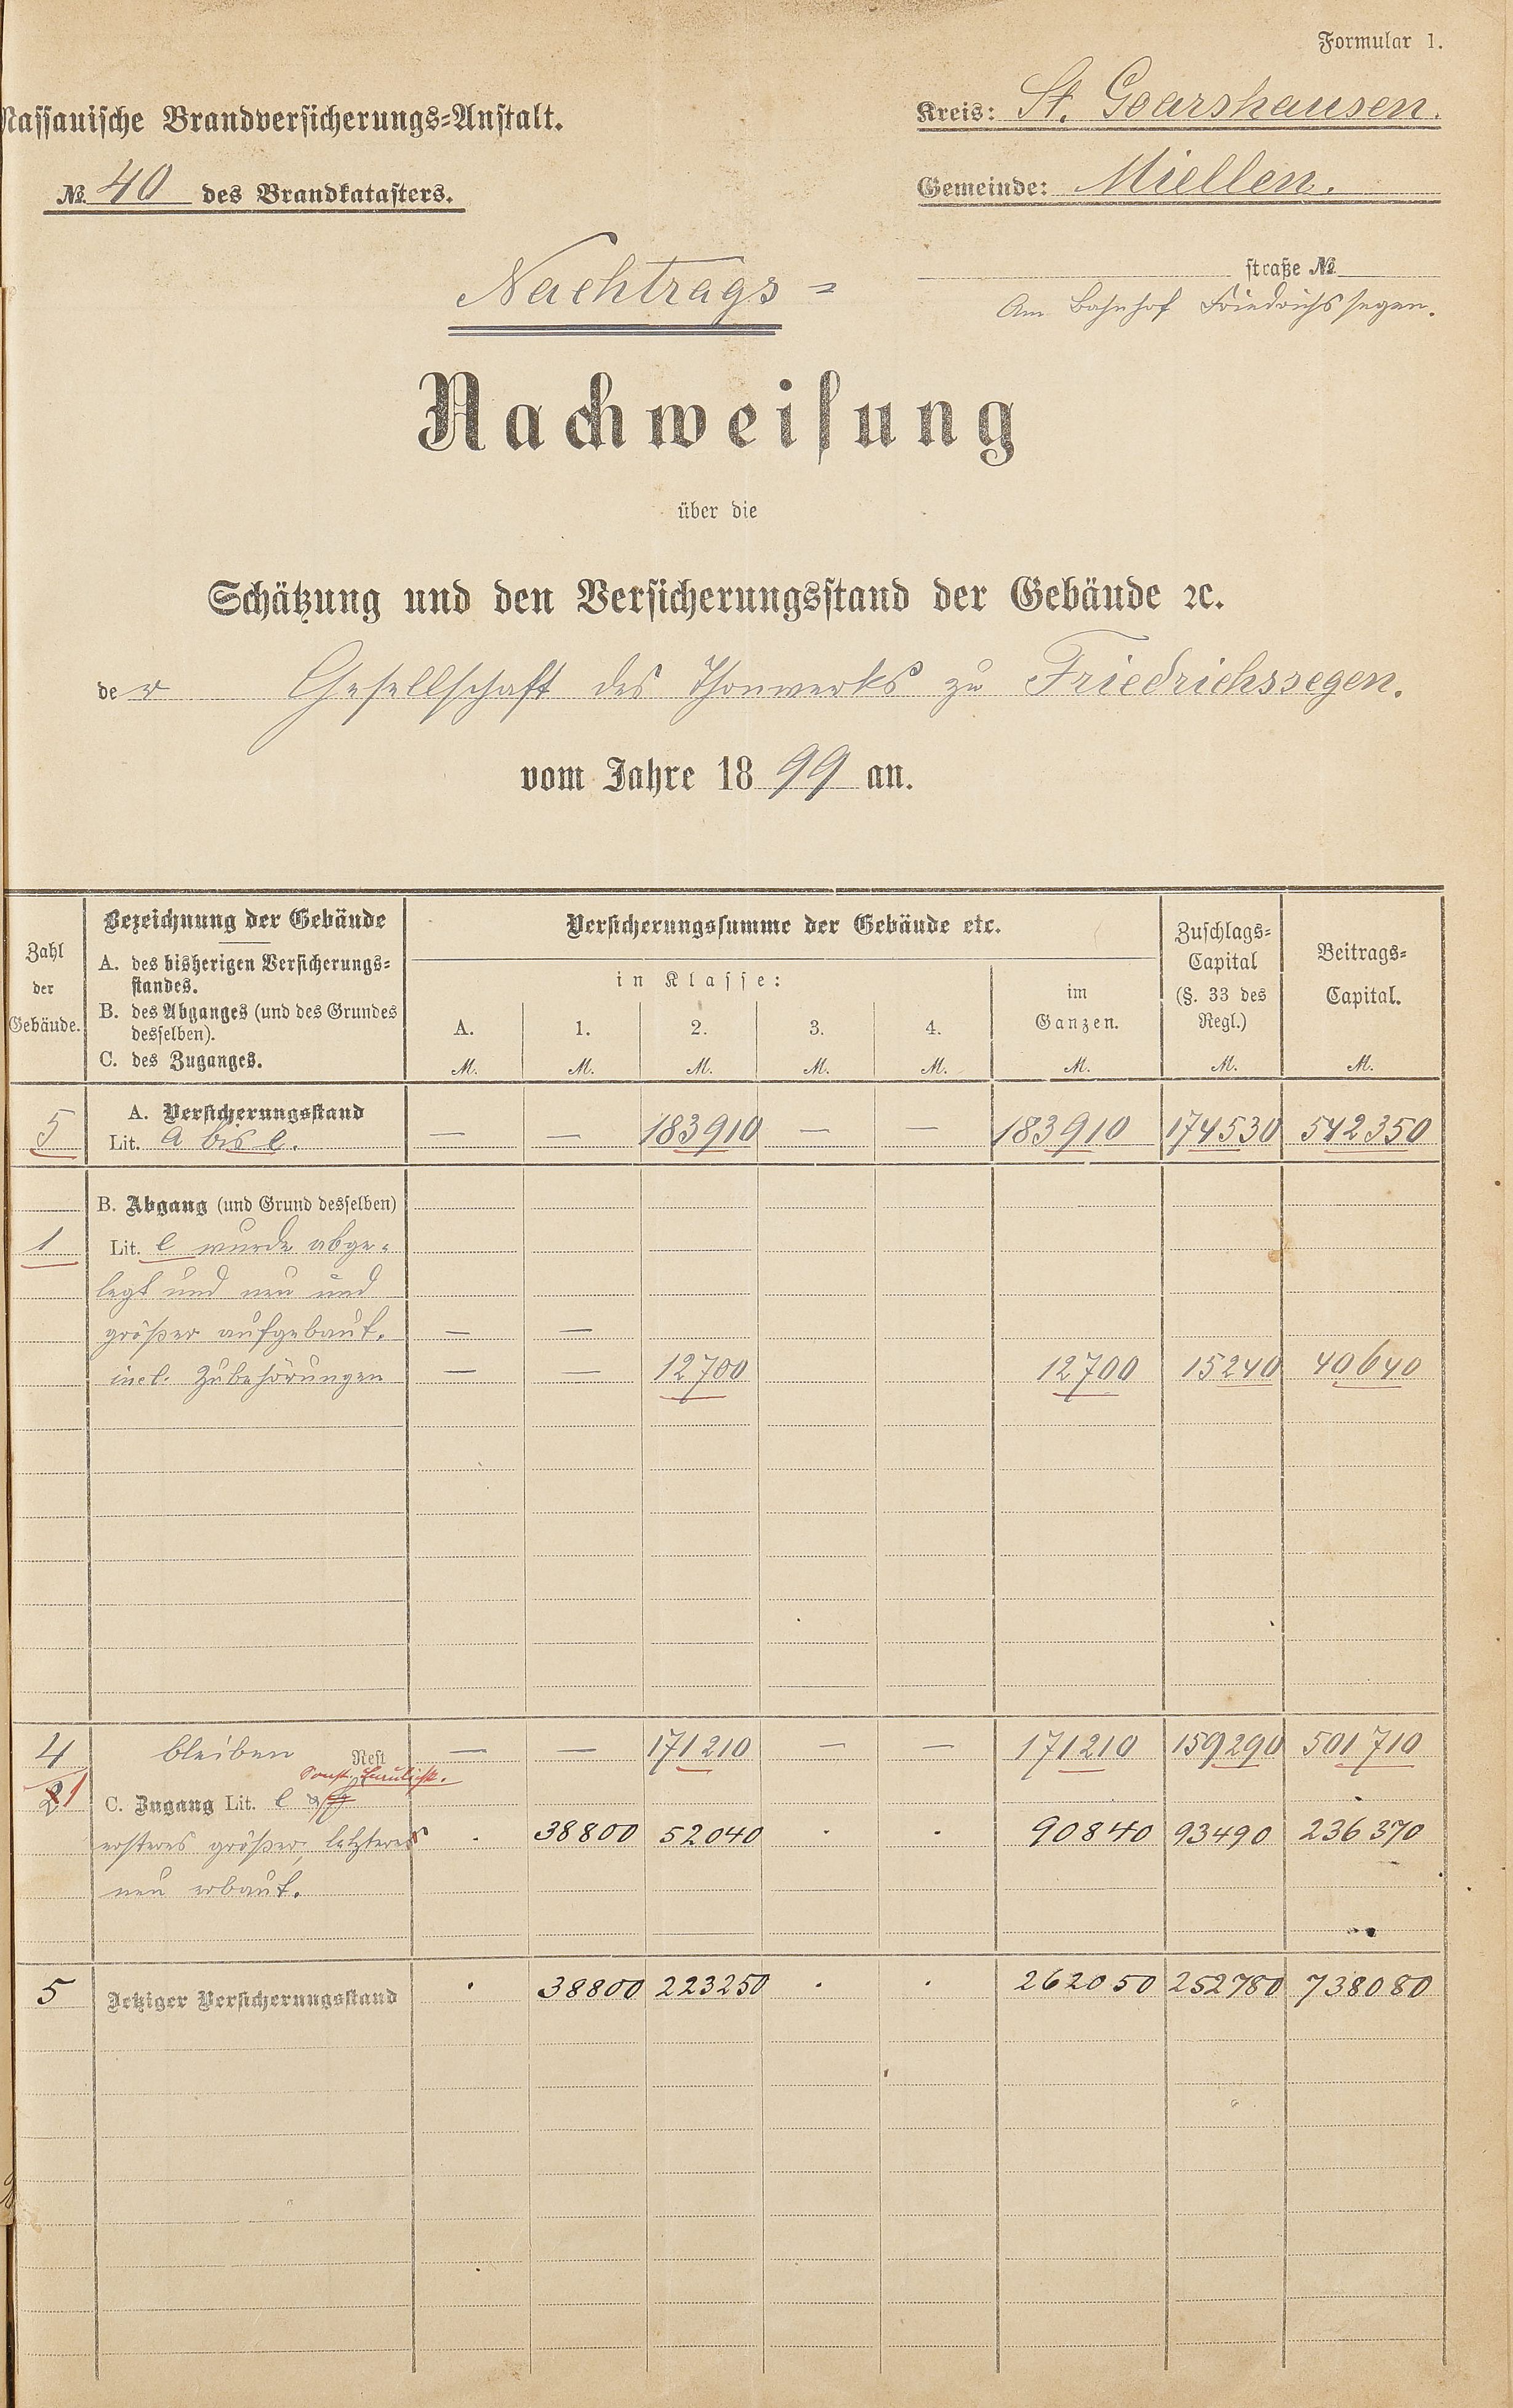 Formular 1.
Nassauische Brandversicherungs-Anstalt.
Kreis: St. Goarshausen.
№ 40 des Brandkatasters.
Gemeinde: Miellen.
straße №
Am Bahnhof Friedrichssegen.
Nachtrags-
Nachweisung
über die
Schätzung und den Versicherungsstand der Gebäude ꝛc.
der Gesellschaft des Thonwerks zu Friedrichssegen.
vom Jahre 1899 an.
Zahl der Gebäude.
Bezeichnung der Gebäude
A. des bisherigen Versicherungs-
standes.
B. des Abganges (und des Grundes
desselben).
C. des Zuganges.
Versicherungssumme der Gebäude etc.
in Klasse:
A. 1. 2. 3. 4.
im Ganzen.
Zuschlags-
Capital
(§. 33 des
Regl.)
Beitrags-
Capital.
M. M. M. M. M. M. M. M.
A. Versicherungsstand
5 Lit. a bis e. — — 183910 — — 183910 174530 542350
B. Abgang (und Grund desselben)
1 Lit. e wurde abge-
legt und neu und
größer aufgebaut. — —
incl. Zubehörungen — — 12700 12700 15240 40640
4 bleiben Rest — — 171210 — — 171210 159290 501710
21 C. Zugang Lit. e
ersteres größer, letzteres . 38800 52040 . . 90840 93490 236370
neu erbaut.
5 Jetziger Versicherungsstand . 38800 223250 . . 262050 252780 738080